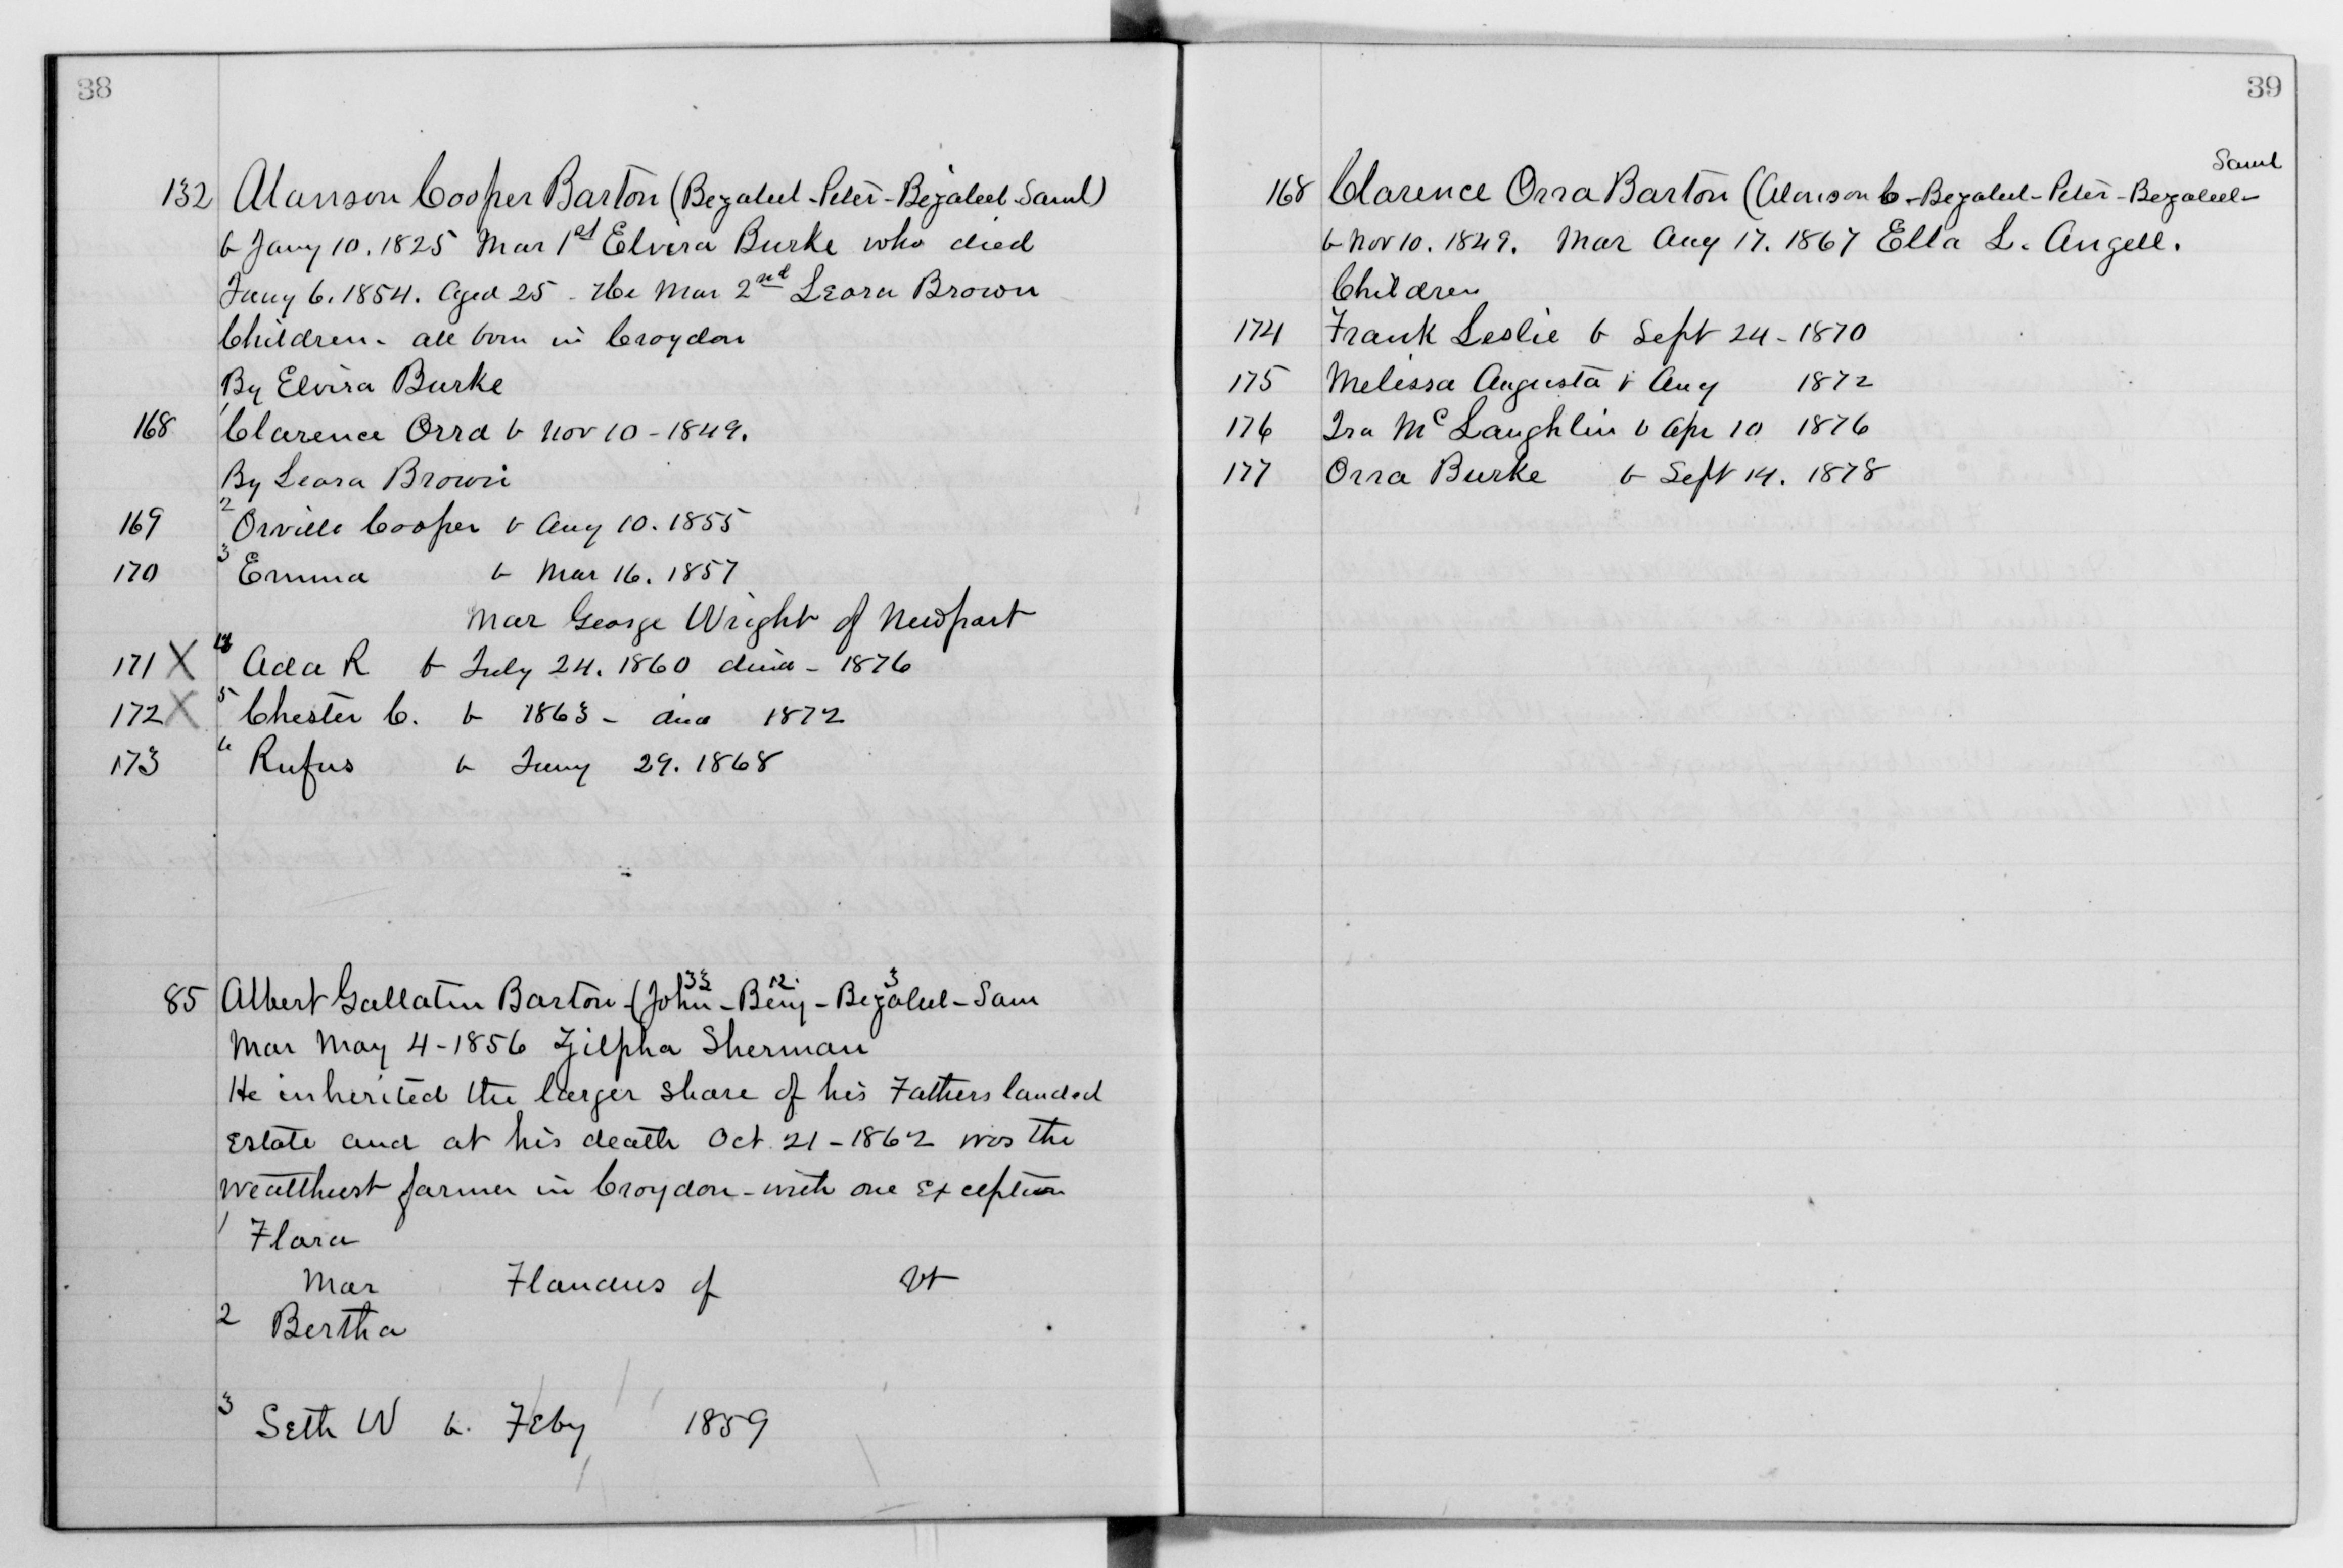 38
132 Alanson Cooper Barton (Bezaleel - Peter - Bezaleel - Saml)
b Jany 10. 1825 Mar 1st Elvira Burke who died
Jany 6. 1854. Aged 25 - He Mar 2nd Leora Brown
Children - all born in Croydon
By Elvira Burke
168 1 Clarence Orra b Nov 10 - 1849.
By Leora Brown
169 2 Orville Cooper b Aug 10. 1855
170 3 Emma b Mar 16. 1857
Mar George Wright of Newport
171 X 4 Ada R b July 24. 1860 died - 1876
172 X 5 Chester C. b 1863 - died 1872
173 6 Rufus b Jany 29. 1868
85 Albert Gallatin Barton - (John 33 - Benj 12. - Bezaleel 3 - Sam
Mar May 4 - 1856 Zilpha Sherman
He inherited the larger share of his Fathers landed
Estate and at his death Oct. 21 - 1862 was the
wealthiest farmer in Croydon - with one Exception
1 Flora
Mar Flanders of Vt
2 Bertha
3 Seth W b. Feby 1859
39
Saml
168 Clarence Orra Barton (Alanson C - Bezaleel - Peter - Bezaleel -
b Nov 10. 1849. Mar Aug 17. 1867 Ella L. Angell.
Children
174 Frank Leslie b Sept 24 - 1870
175 Melissa Augusta b Aug 1872
176 Ira McLaughlin b Apr 10 1876
177 Orra Burke b Sept 14. 1878